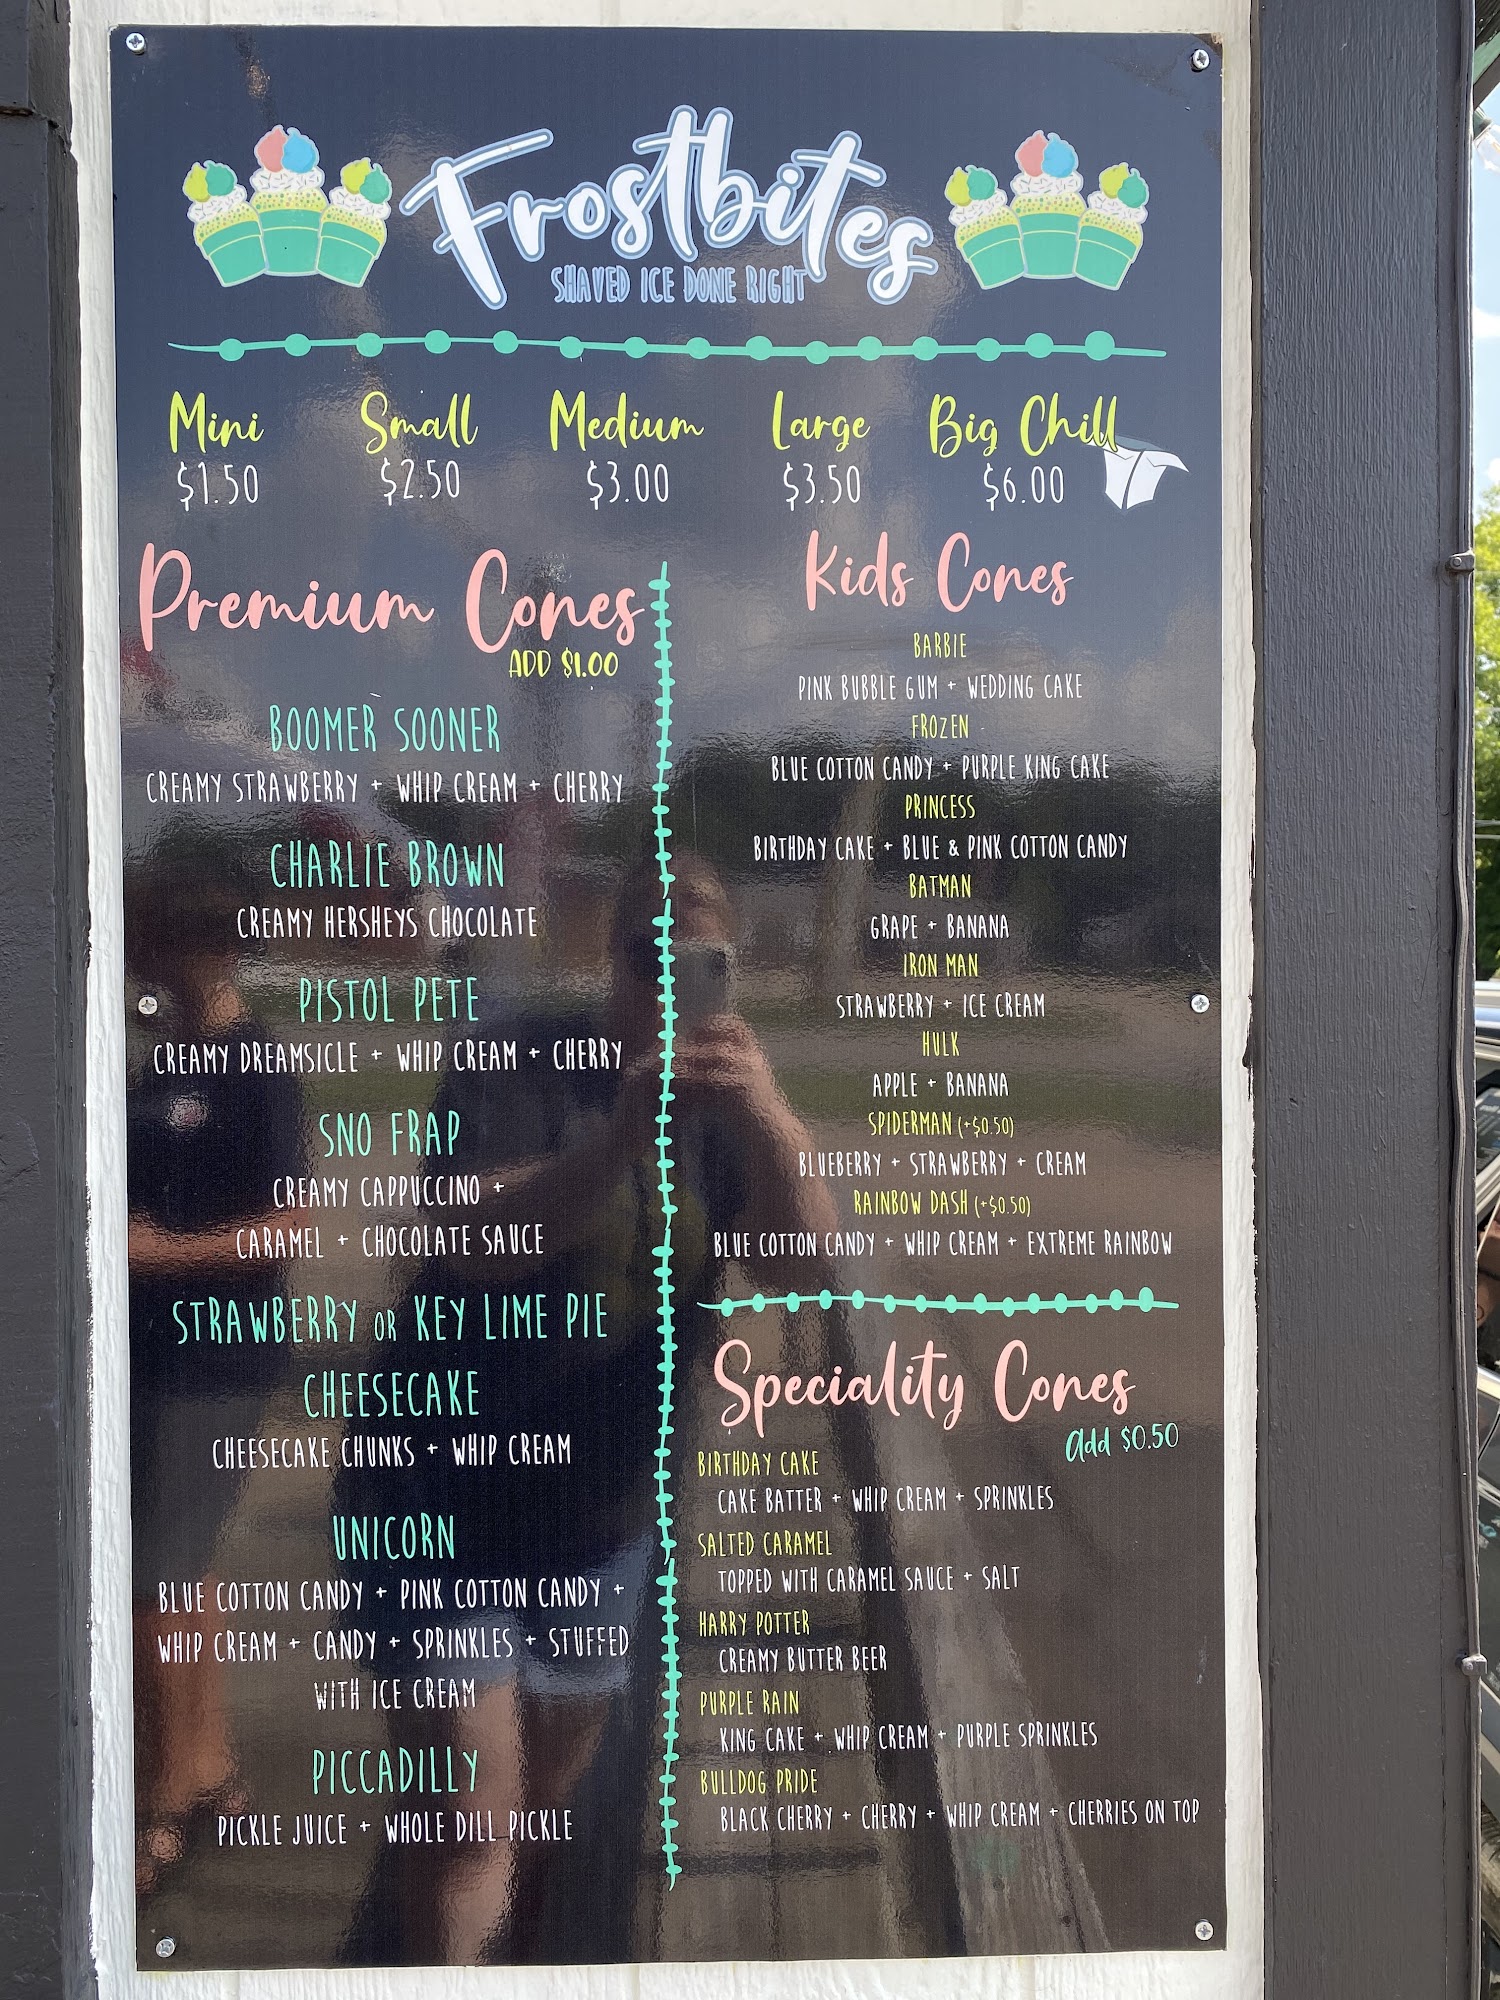 Frostbites
SHAVED ICE DONE RIGHT
Mini Small Medium Large Big Chill
$1.50 $2.50 $3.00 $3.50 $6.00
Premium Cones
ADD $1.00
BOOMER SOONER
CREAMY STRAWBERRY + WHIP CREAM + CHERRY
CHARLIE BROWN
CREAMY HERSHEYS CHOCOLATE
PISTOL PETE
CREAMY DREAMSICLE + WHIP CREAM + CHERRY
SNO FRAP
CREAMY CAPPUCCINO +
CARAMEL + CHOCOLATE SAUCE
STRAWBERRY OR KEY LIME PIE
CHEESECAKE
CHEESECAKE CHUNKS + WHIP CREAM
UNICORN
BLUE COTTON CANDY + PINK COTTON CANDY +
WHIP CREAM + CANDY + SPRINKLES + STUFFED
WITH ICE CREAM
PICCADILLY
PICKLE JUICE + WHOLE DILL PICKLE
Kids Cones
BARBIE
PINK BUBBLE GUM + WEDDING CAKE
FROZEN
BLUE COTTON CANDY + PURPLE KING CAKE
PRINCESS
BIRTHDAY CAKE + BLUE & PINK COTTON CANDY
BATMAN
GRAPE + BANANA
IRON MAN
STRAWBERRY + ICE CREAM
HULK
APPLE + BANANA
SPIDERMAN (+$0.50)
BLUEBERRY + STRAWBERRY + CREAM
RAINBOW DASH (+$0.50)
BLUE COTTON CANDY + WHIP CREAM + EXTREME RAINBOW
Speciality Cones
Add $0.50
BIRTHDAY CAKE
CAKE BATTER + WHIP CREAM + SPRINKLES
SALTED CARAMEL
TOPPED WITH CARAMEL SAUCE + SALT
HARRY POTTER
CREAMY BUTTER BEER
PURPLE RAIN
KING CAKE + WHIP CREAM + PURPLE SPRINKLES
BULLDOG PRIDE
BLACK CHERRY + CHERRY + WHIP CREAM + CHERRIES ON TOP